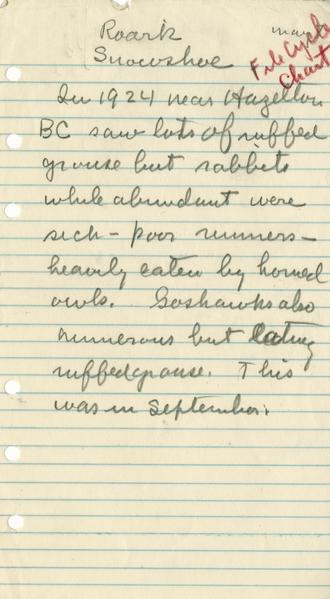 Roark
Snowshoe
File Cycle
Chart
In 1924 near Hazelton
BC saw lots of ruffed
grouse but rabbits
while abundant were
sick – poor runners –
heavily eaten by horned
owls. Goshawks also
numerous but eating
ruffed grouse. This
was in September.